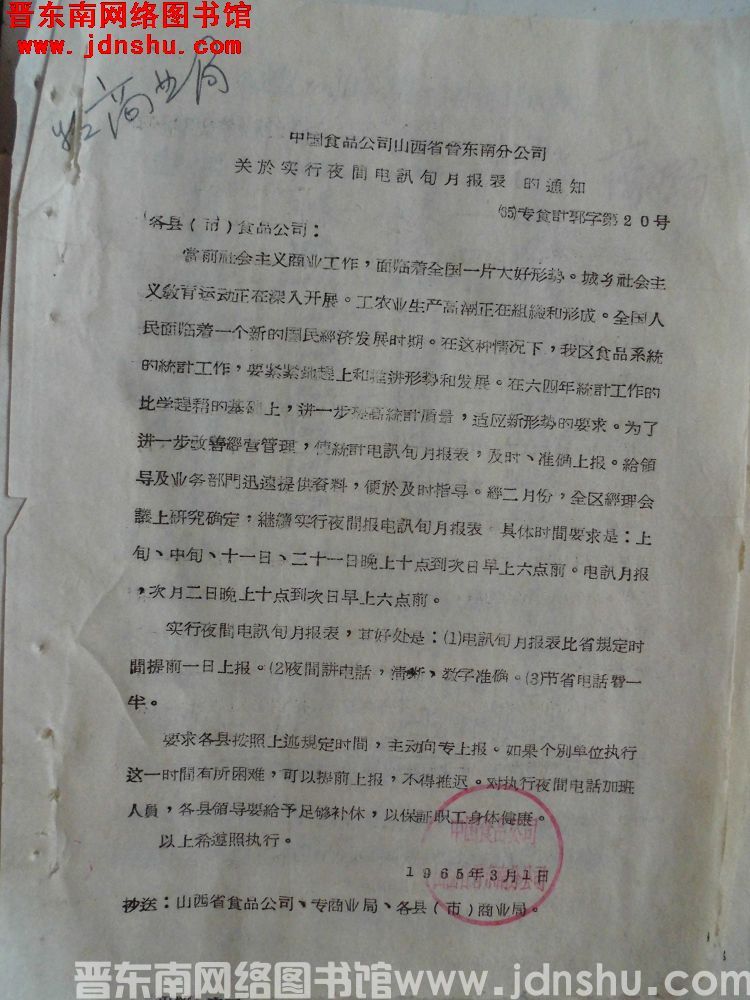 晋东南网络图书馆
www.jdnshu.com
商业局
中国食品公司山西省晋东南分公司
关於实行夜間电訊旬月报表的通知
(65)专食計郭字第20号
各县(市)食品公司：
當前社会主义商业工作，面临着全国一片大好形势。城乡社会主
义教育运动正在深入开展。工农业生产高潮正在組織和形成。全国人
民面临着一个新的国民經济发展时期。在这种情况下，我区食品系統
的統計工作，要紧紧地趕上和推进形势和发展。在六四年統計工作的
比学趕帮的基础上，进一步提高統計质量，适应新形势的要求。为了
进一步改善經营管理，使統計电訊旬月报表，及时、准确上报。給領
导及业务部門迅速提供資料，便於及时指导。經二月份，全区經理会
議上研究确定，継續实行夜間报电訊旬月报表。具体时間要求是：上
旬、中旬、十一日、二十一日晚上十点到次日早上六点前。电訊月报
，次月二日晚上十点到次日早上六点前。
实行夜間电訊旬月报表，其好处是：(1)电訊旬月报表比省規定时
間提前一日上报。(2)夜間講电話，清晰，数字准确。(3)节省电話費一
半。
要求各县按照上述規定时間，主动向专上报。如果个别单位执行
这一时間有所困难，可以提前上报，不得推迟。对执行夜間电話加班
人員，各县領导要給予足够补休，以保証职工身体健康。
以上希遵照执行。
中国食品公司
1965年3月1日
抄送：山西省食品公司、专商业局、各县(市)商业局。
晋东南网络图书馆www.jdnshu.com